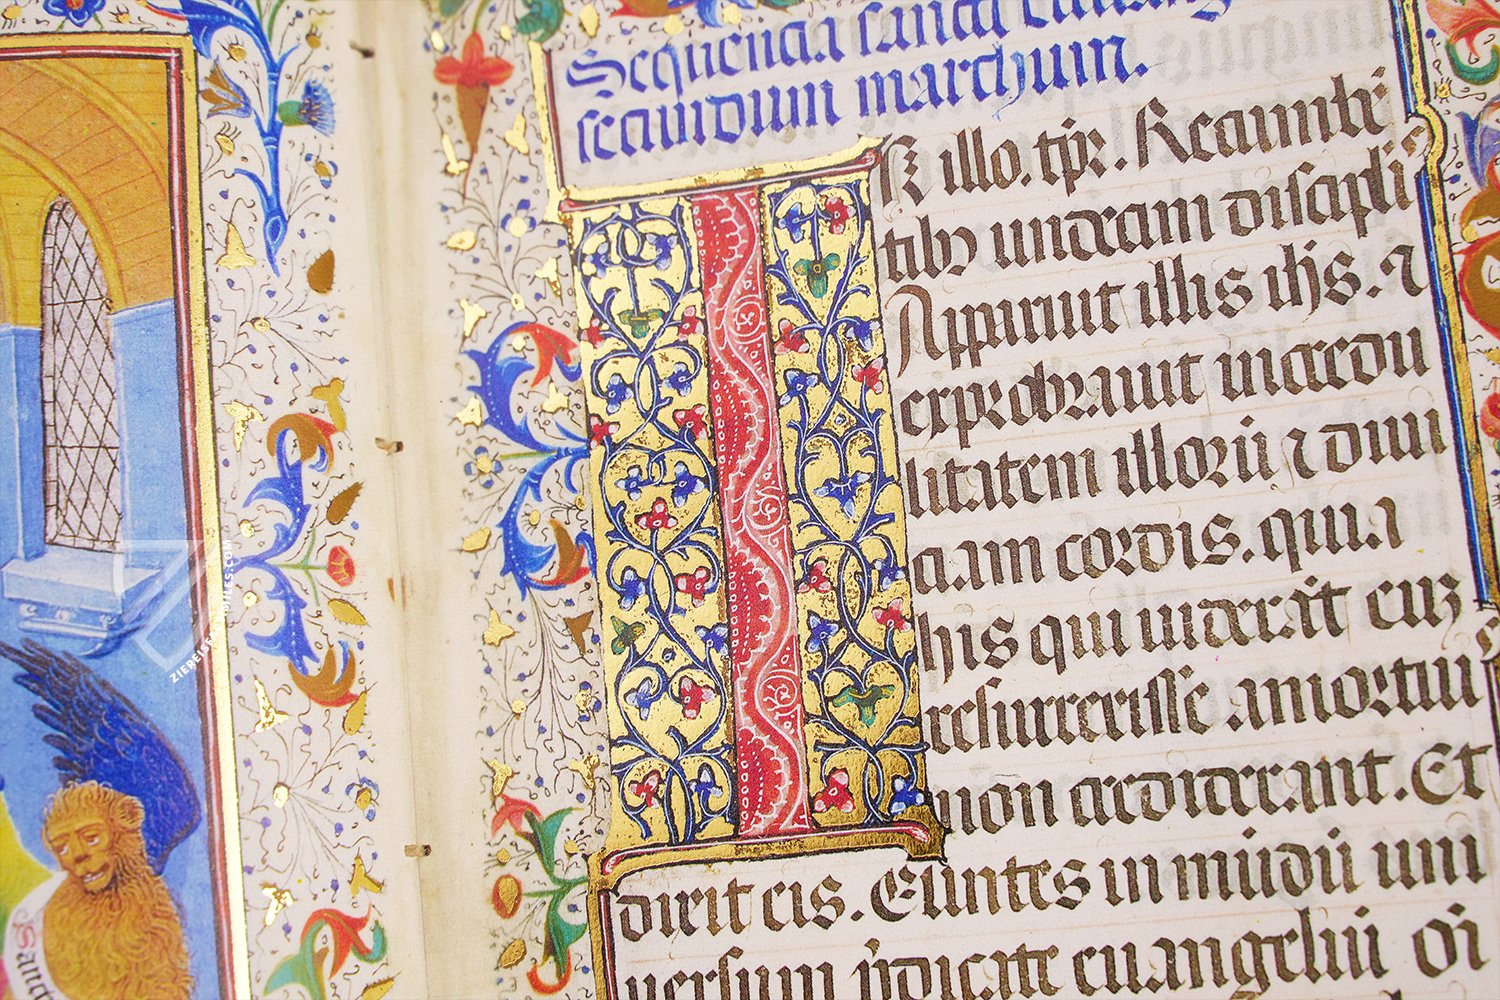 Sequencia sancti euang
secundum marchum.
In illo. tpr. Recumbē
tibz undecim discipli
Apparuit illis ihs. ⁊
exprobrauit incredu
litatem illorū ⁊ duri
ciam cordis. quia
his qui uiderāt euz
resurrexisse amortui
non crediderant. Et
dixit eis. Euntes in mūdū uni
uersum p̄dicate euangeliū oī
Sanct
ZIEREISFACSIMILES.COM